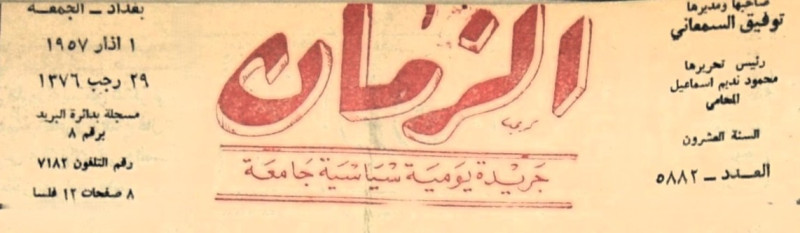 صاحبها ومديرها
توفيق السمعاني
رئيس تحريرها
محمود نديم اسماعيل
المحامي
السنة العشرون
العدد ــ ٥٨٨٢
الزمان
جريدة يومية سياسية جامعة
بغداد ــ الجمعة
١ اذار ١٩٥٧
٢٩ رجب ١٣٧٦
مسجلة بدائرة البريد
برقم ٨
رقم التلفون ٧١٨٢
٨ صفحات ١٢ فلسا